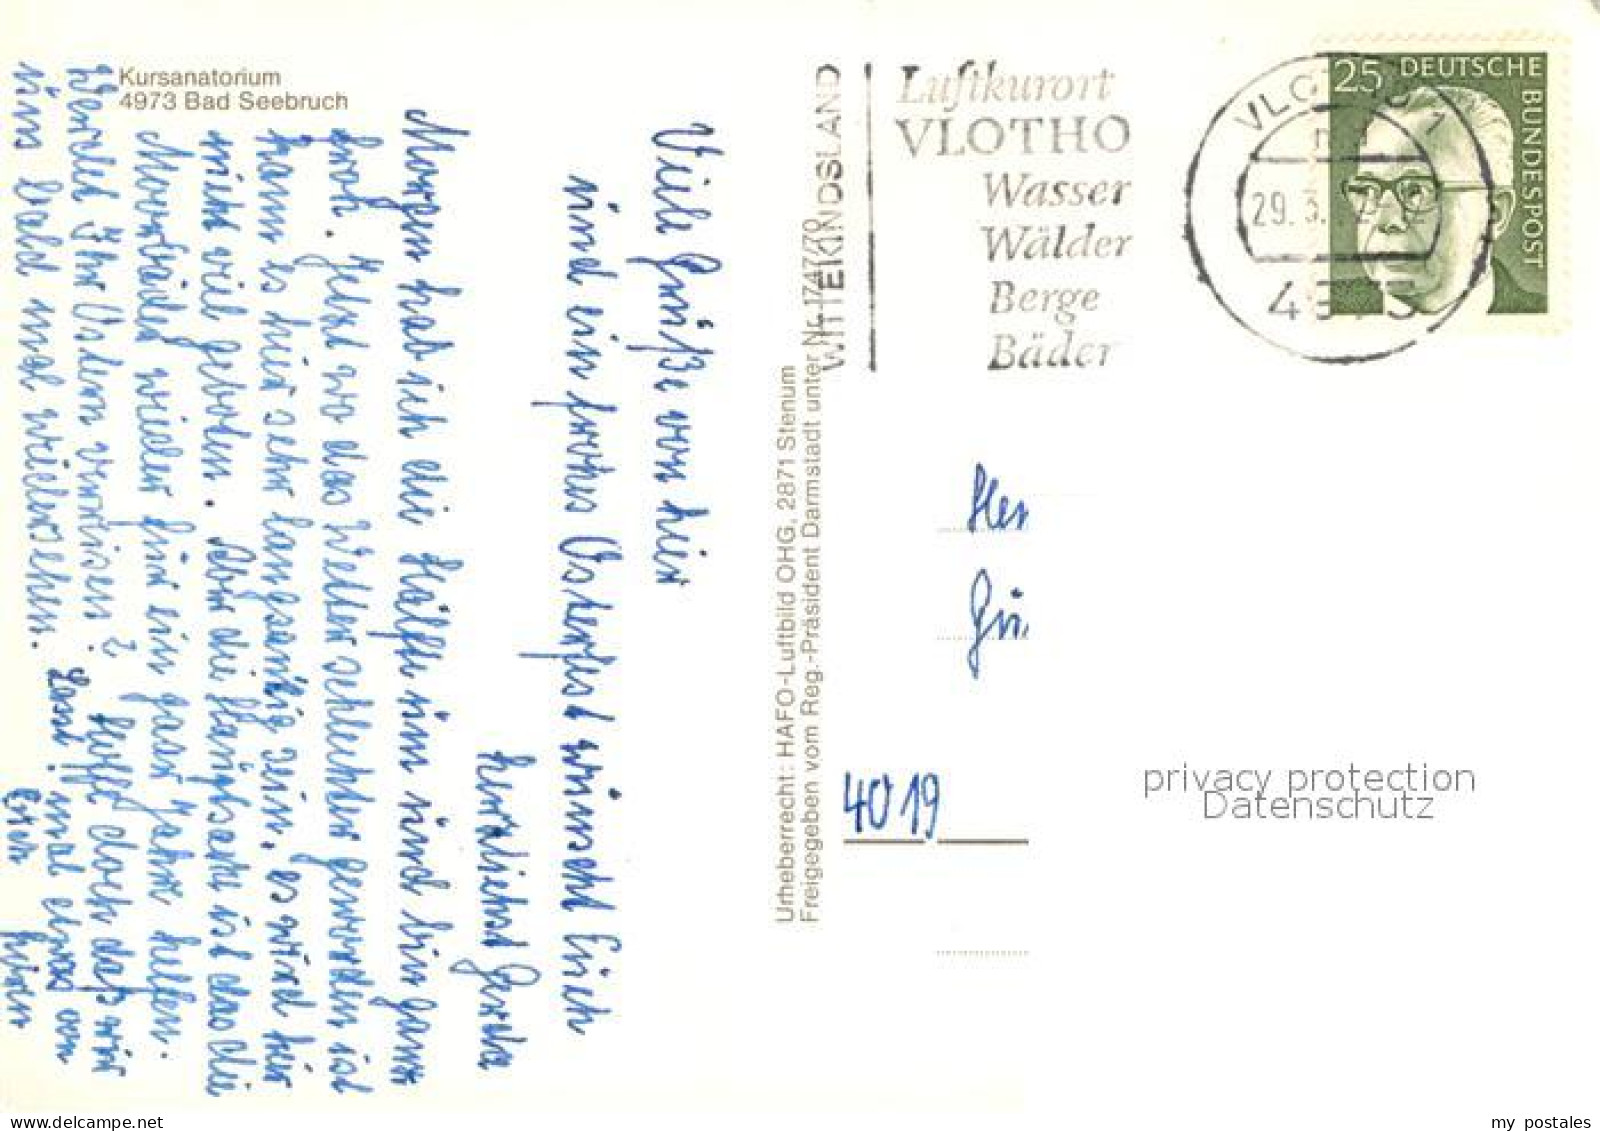 Kursanatorium
4973 Bad Seebruch
Viele Grüße von hier
und ein frohes Osterfest wünscht Euch
herzlichst Gerda
Morgen hab ich die Hälfte um und bin ganz
froh. Jetzt wo das Wetter schlechter geworden ist
kann es hier sehr langweilig sein, es wird hier
nicht viel geboten. Aber die Hauptsache ist das die
Moorbäder wieder für ein paar Jahre helfen.
Werdet Ihr Ostern verreisen? Hoffe doch daß wir
uns bald mal wiedersehen. Lasst mal etwas von
Euch hören
Urheberrecht: HAFO-Luftbild OHG, 2871 Stenum
Freigegeben vom Reg.-Präsident Darmstadt unter Nr. 1747/70
WITTEKINDSLAND
Luftkurort
VLOTHO
Wasser
Wälder
Berge
Bäder
VLOTHO 1
29. 3.
4973
25 DEUTSCHE
BUNDESPOST
4019
privacy protection
Datenschutz
my postales